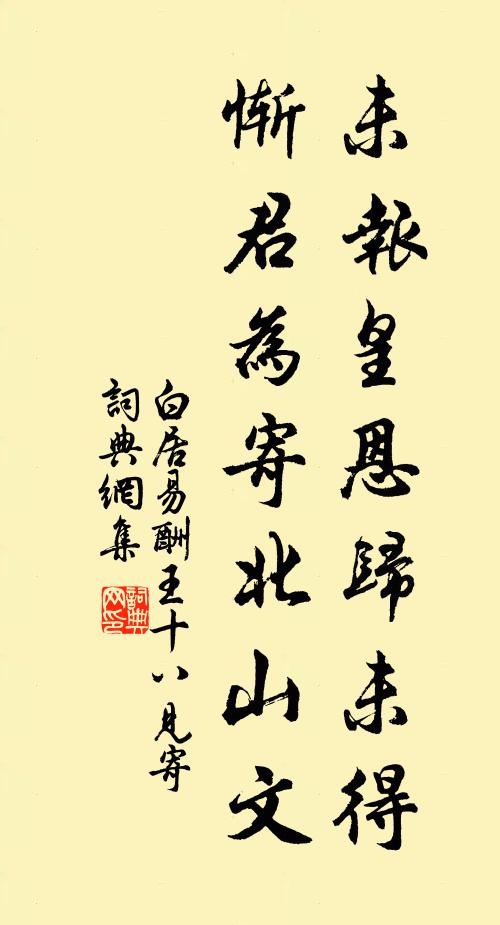 未報皇恩歸未得
慚君為寄北山文
白居易酬王十八見寄
詞典網集
詞典
网印